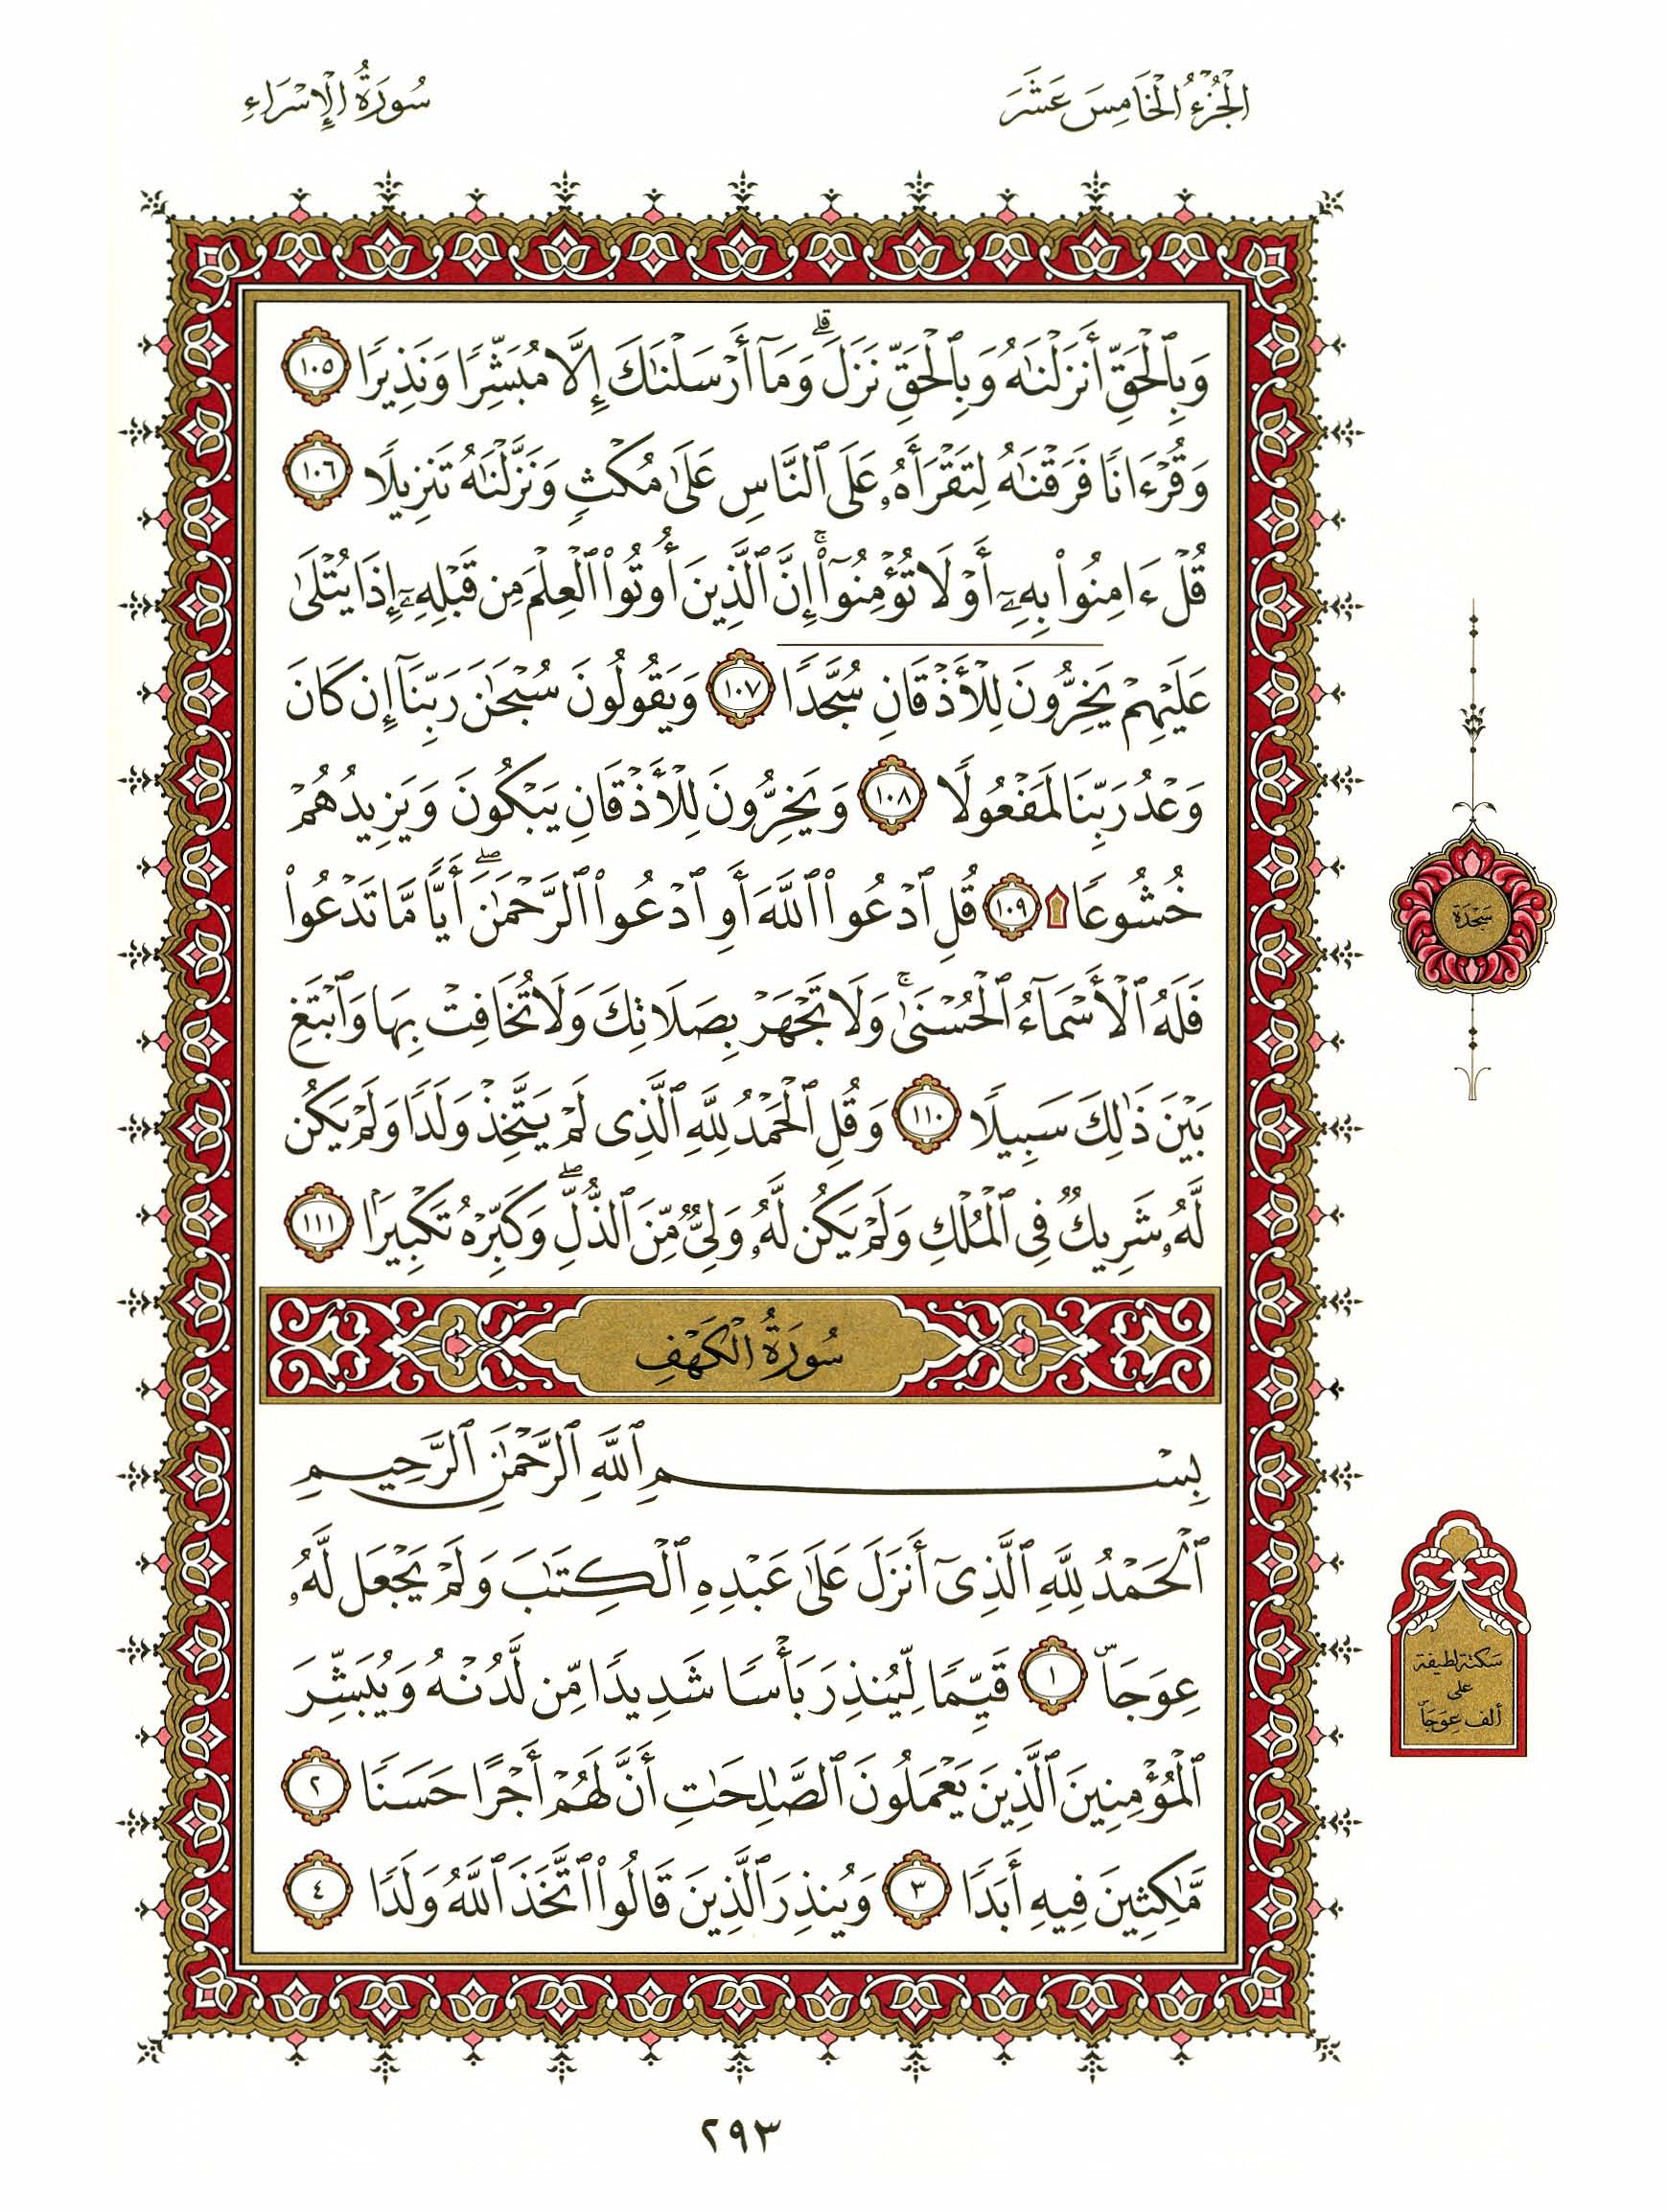 الجزء الخامس عشر
سورة الإسراء
وَبِٱلْحَقِّ أَنزَلْنَٰهُ وَبِٱلْحَقِّ نَزَلَ ۗ وَمَآ أَرْسَلْنَٰكَ إِلَّا مُبَشِّرًا وَنَذِيرًا ١٠٥
وَقُرْءَانًا فَرَقْنَٰهُ لِتَقْرَأَهُۥ عَلَى ٱلنَّاسِ عَلَىٰ مُكْثٍ وَنَزَّلْنَٰهُ تَنزِيلًا ١٠٦
قُلْ ءَامِنُوا۟ بِهِۦٓ أَوْ لَا تُؤْمِنُوٓا۟ ۚ إِنَّ ٱلَّذِينَ أُوتُوا۟ ٱلْعِلْمَ مِن قَبْلِهِۦٓ إِذَا يُتْلَىٰ
عَلَيْهِمْ يَخِرُّونَ لِلْأَذْقَانِ سُجَّدًا ١٠٧ وَيَقُولُونَ سُبْحَٰنَ رَبِّنَآ إِن كَانَ
وَعْدُ رَبِّنَا لَمَفْعُولًا ١٠٨ وَيَخِرُّونَ لِلْأَذْقَانِ يَبْكُونَ وَيَزِيدُهُمْ
خُشُوعًا ۩ ١٠٩ قُلِ ٱدْعُوا۟ ٱللَّهَ أَوِ ٱدْعُوا۟ ٱلرَّحْمَٰنَ ۖ أَيًّا مَّا تَدْعُوا۟
فَلَهُ ٱلْأَسْمَآءُ ٱلْحُسْنَىٰ ۚ وَلَا تَجْهَرْ بِصَلَاتِكَ وَلَا تُخَافِتْ بِهَا وَٱبْتَغِ
بَيْنَ ذَٰلِكَ سَبِيلًا ١١٠ وَقُلِ ٱلْحَمْدُ لِلَّهِ ٱلَّذِى لَمْ يَتَّخِذْ وَلَدًا وَلَمْ يَكُن
لَّهُۥ شَرِيكٌ فِى ٱلْمُلْكِ وَلَمْ يَكُن لَّهُۥ وَلِىٌّ مِّنَ ٱلذُّلِّ ۖ وَكَبِّرْهُ تَكْبِيرًۢا ١١١
سُورَةُ الْكَهْفِ
بِسْمِ ٱللَّهِ ٱلرَّحْمَٰنِ ٱلرَّحِيمِ
ٱلْحَمْدُ لِلَّهِ ٱلَّذِىٓ أَنزَلَ عَلَىٰ عَبْدِهِ ٱلْكِتَٰبَ وَلَمْ يَجْعَل لَّهُۥ
عِوَجَاۜ ١ قَيِّمًا لِّيُنذِرَ بَأْسًا شَدِيدًا مِّن لَّدُنْهُ وَيُبَشِّرَ
ٱلْمُؤْمِنِينَ ٱلَّذِينَ يَعْمَلُونَ ٱلصَّٰلِحَٰتِ أَنَّ لَهُمْ أَجْرًا حَسَنًا ٢
مَّٰكِثِينَ فِيهِ أَبَدًا ٣ وَيُنذِرَ ٱلَّذِينَ قَالُوا۟ ٱتَّخَذَ ٱللَّهُ وَلَدًا ٤
سَجْدَة
سكتة لطيفة
على
ألف عِوَجَاۜ
٢٩٣